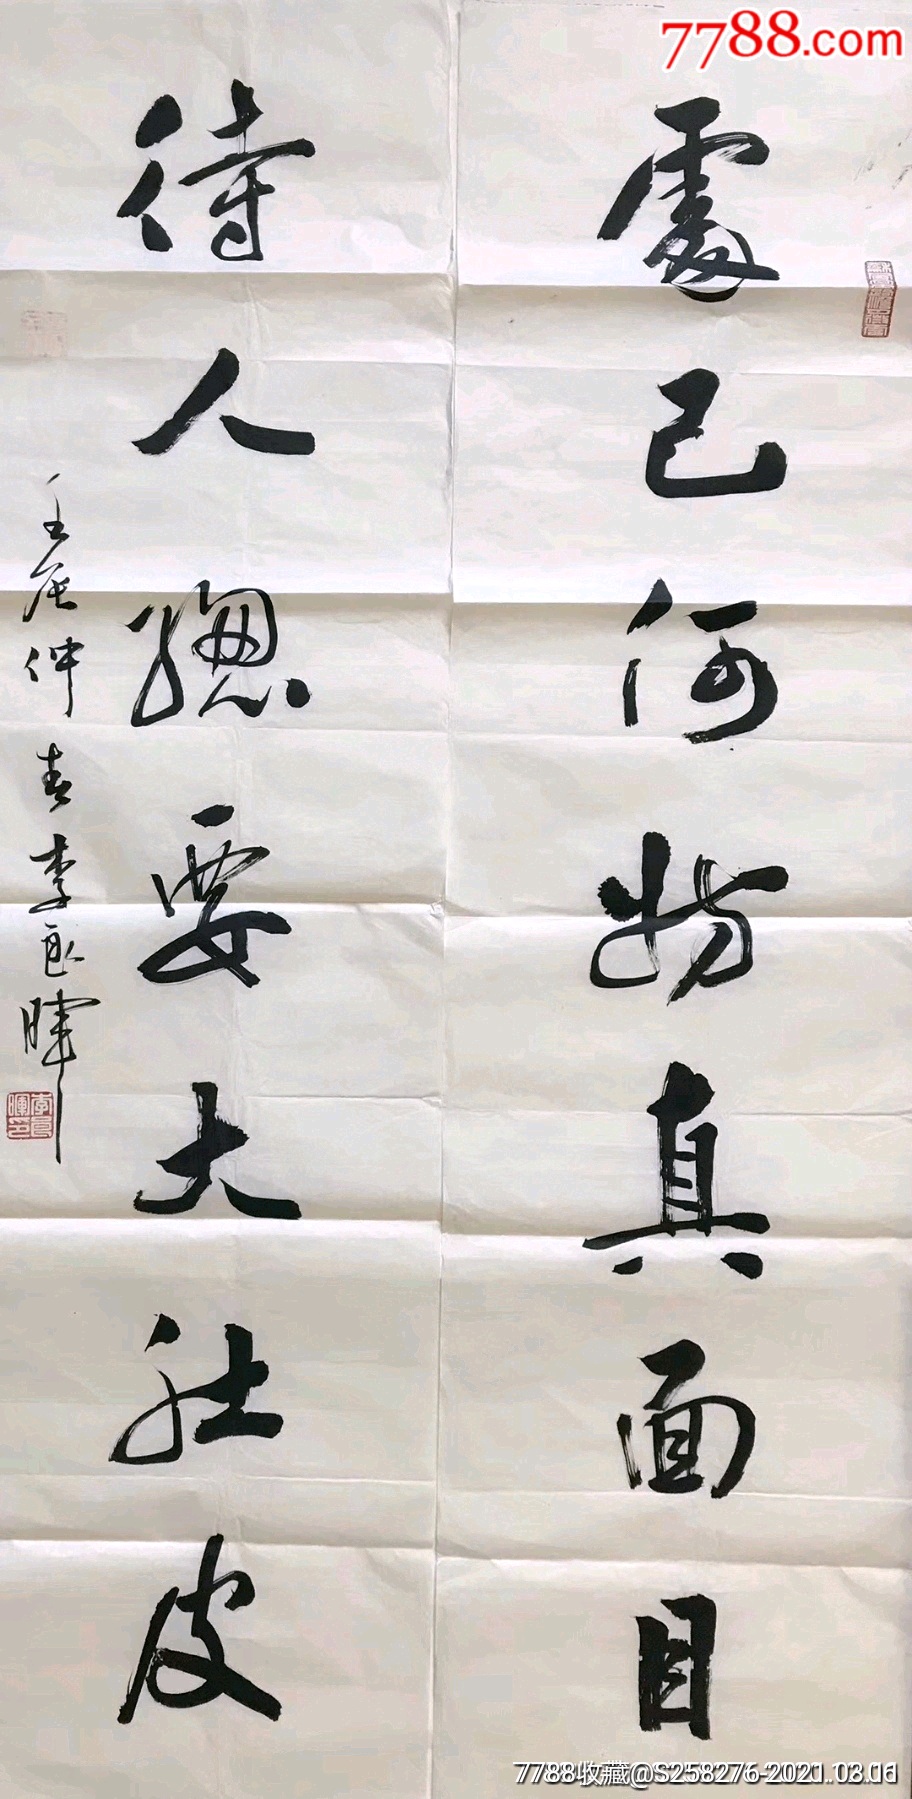 7788.com
處己何妨真面目
待人總要大肚皮
壬辰仲春李良暉
李良暉印
7788收藏@S258276-2021.03.06